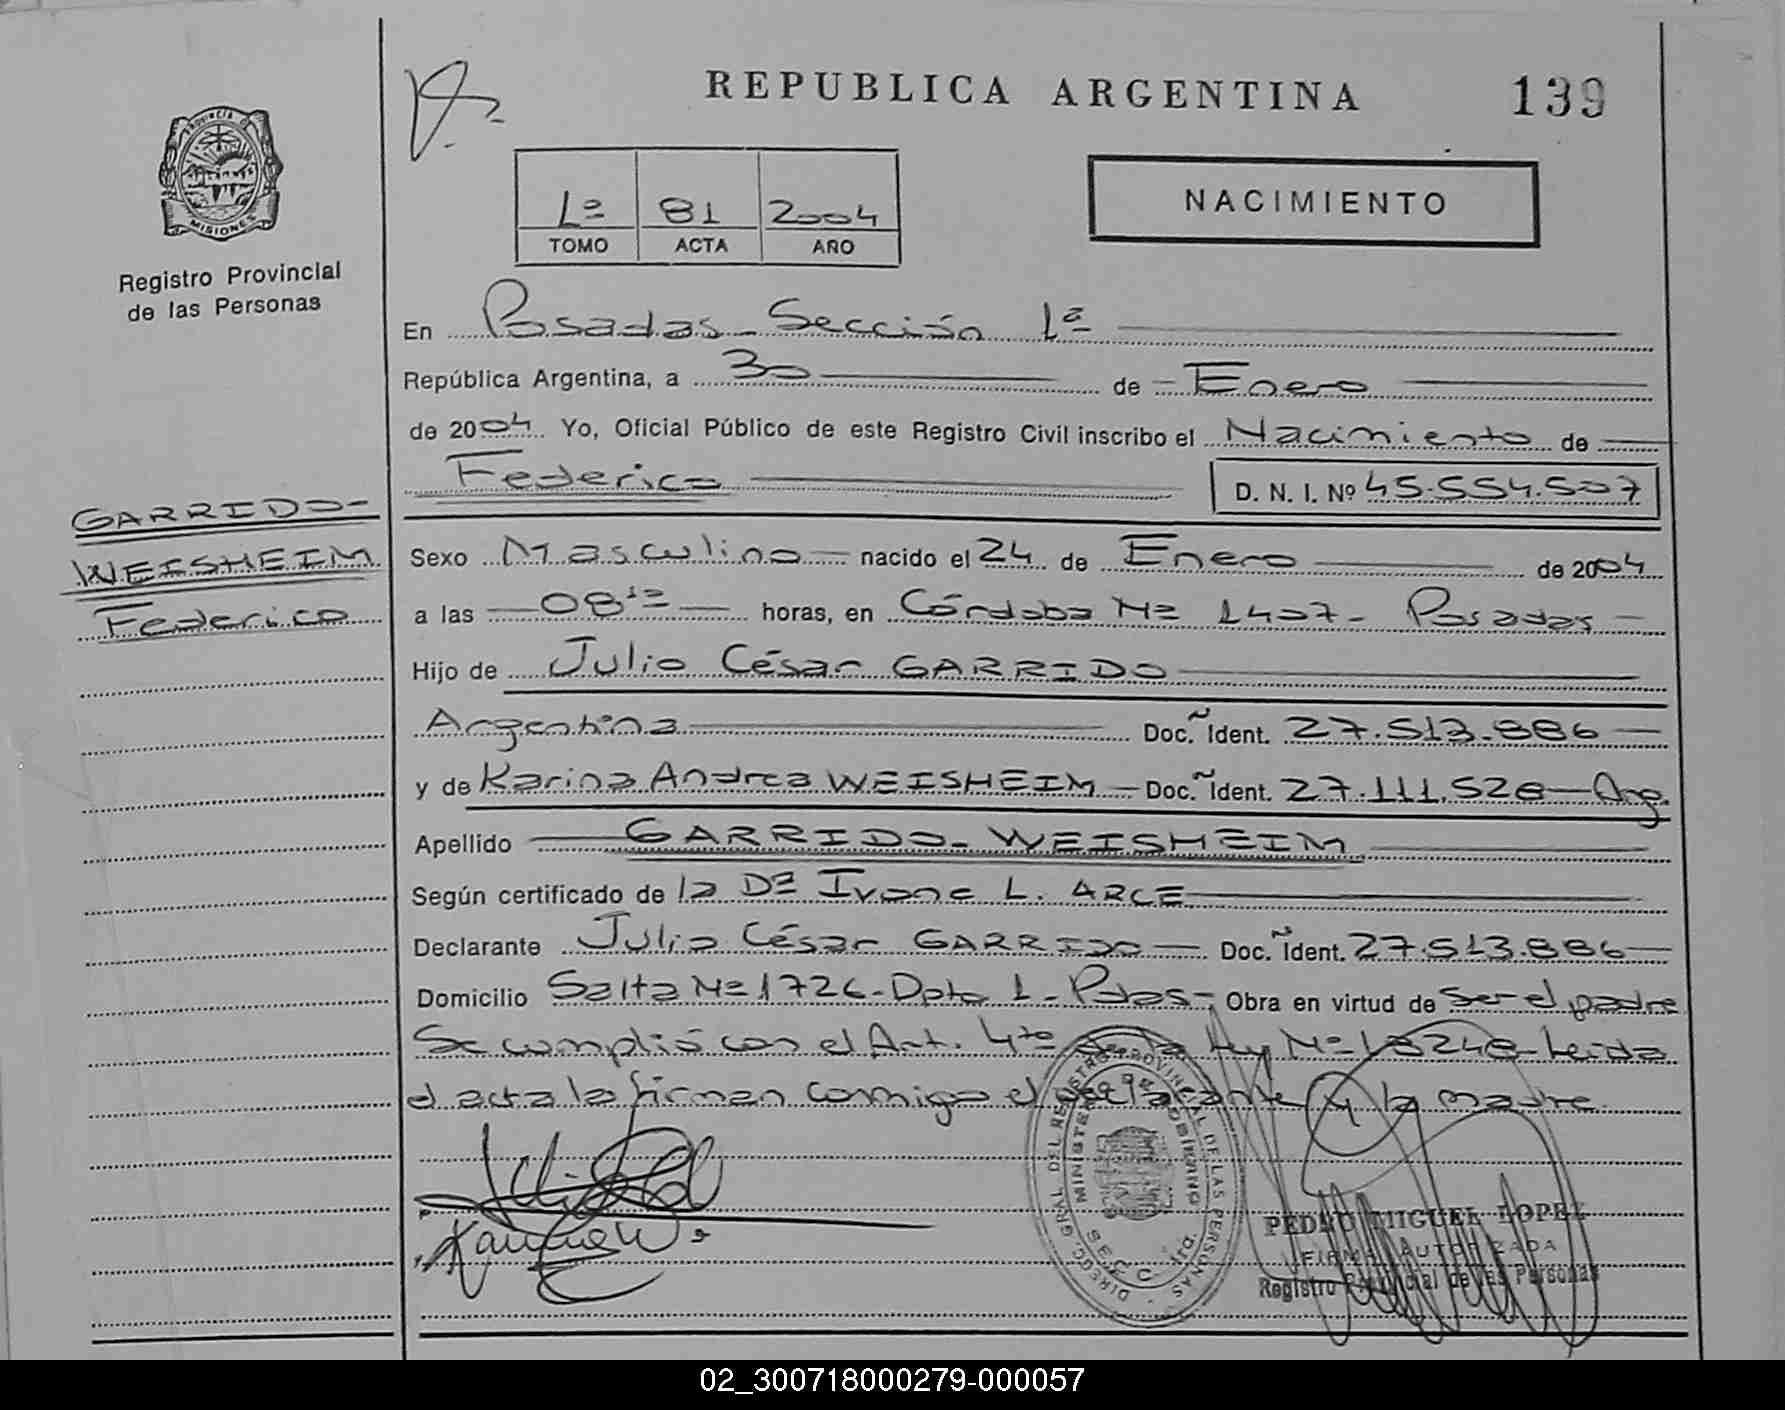 REPUBLICA ARGENTINA
139
PROVINCIA DE
MISIONES
Registro Provincial
de las Personas
1º 81 2004
TOMO ACTA AÑO
NACIMIENTO
En Posadas - Sección 1ª
República Argentina, a 30 de Enero
de 2004 Yo, Oficial Público de este Registro Civil inscribo el Nacimiento de
Federico D. N. I. Nº 45.554.507
GARRIDO-
WEISHEIM
Federico
Sexo Masculino nacido el 24 de Enero de 2004
a las 08¹⁰ horas, en Córdoba Nº 1407 - Posadas
Hijo de Julio César GARRIDO
Argentina Doc. Ident. 27.513.886
y de Karina Andrea WEISHEIM Doc. Ident. 27.111.528 - Arg.
Apellido GARRIDO-WEISHEIM
Según certificado de la Dª Ivone L. ARCE
Declarante Julio César GARRIDO Doc. Ident. 27.513.886
Domicilio Salta Nº 1726 - Dpto 1 - Pdas - Obra en virtud de ser el padre
Se cumplió con el Art. 4to de la ley Nº 18248 - Leida
el acta la firman conmigo el declarante y la madre
PEDRO MIGUEL LOPEZ
FIRMA AUTORIZADA
Registro Provincial de las Personas
02_300718000279-000057